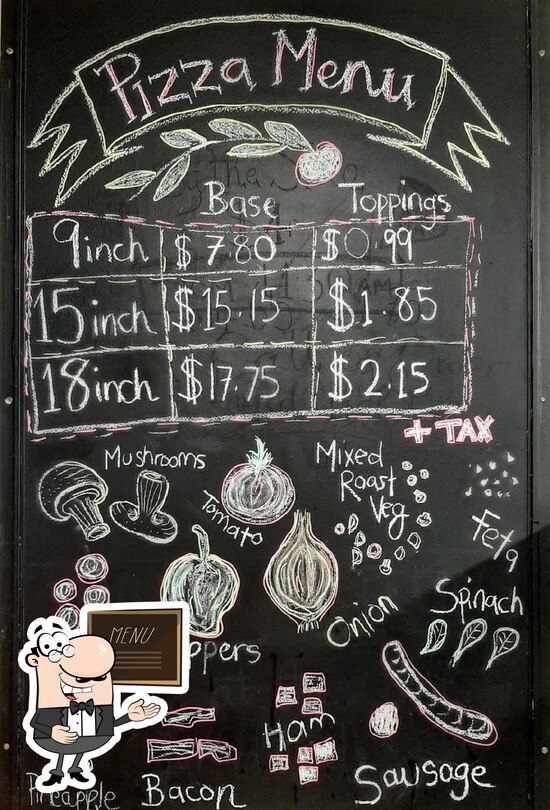 Pizza Menu
Base Toppings
9inch $7.80 $0.99
15inch $15.15 $1.85
18inch $17.75 $2.15
+ TAX
Mushrooms
Tomato
Mixed
Roast
Veg
Feta
ppers
Onion
Spinach
MENU
Ham
Pineapple
Bacon
Sausage